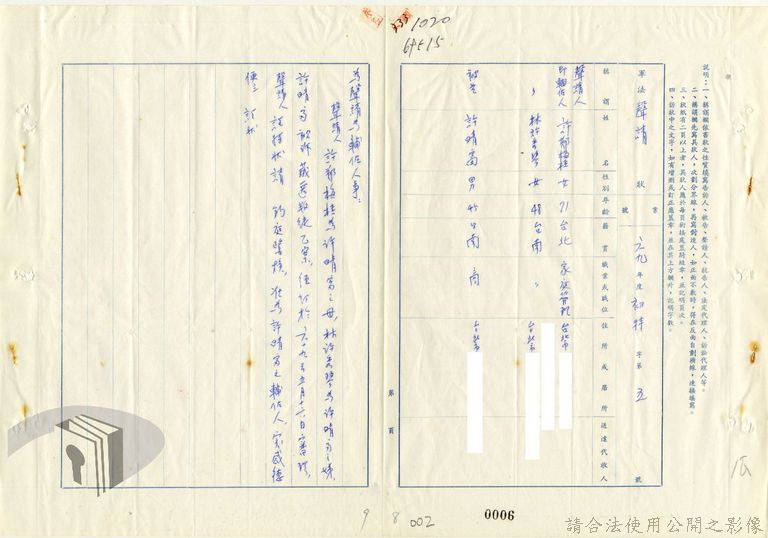 說明：一、稱謂欄依書狀之性質填寫告訴人、被告、聲請人、抗告人、法定代理人、訴訟代理人等。
二、稱謂欄先寫具狀人，次劃分界線，再寫對造人，如正面不敷時，得在反面自劃橫線，連接填寫。
三、狀紙有二頁以上者，具狀人應於每頁銜接處蓋騎縫章，並記明頁次。
四、訴狀中之文字，如有增刪或訂正應蓋章，並在其上方欄外，記明字數。
軍法 聲請 狀
案號 六九 年度 初特 字第 五 號
稱謂 姓名 性別 年齡 籍貫 職業或職位 住所或居所 送達代收人
聲請人
即輔佐人 許鄭梅桂 女 71 台北 家庭管理 台北市
〃 林許 女 48 台南 〃 台北市
被告 許晴富 男 45 台南 商 台北市
第 頁
為聲請為輔佐人事：
聲請人許鄭梅桂為許晴富之母，林許 為許晴富之姊，
許晴富 叛徒乙案，經 於六十九年五月十六日審理，
聲請人 請 鈞庭 准為許晴富之輔佐人，實感德
便。 謹狀
1020
64-15
9
8
002
0006
請合法使用公開之影像